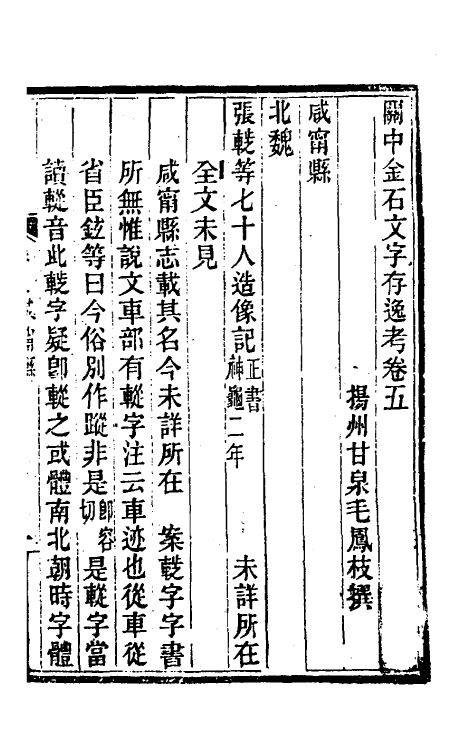 關中金石文字存逸考卷五
揚州甘泉毛鳳枝撰
咸甯縣
北魏
張䡮等七十人造像記 正書 神龜二年 未詳所在
全文未見
咸甯縣志載其名今未詳所在 案䡮字字書
所無惟說文車部有䡮字注云車迹也從車從
省臣鉉等曰今俗別作蹤非是 即容切 是䡮字當
讀䡮音此䡮字疑卽䡮之或體南北朝時字體